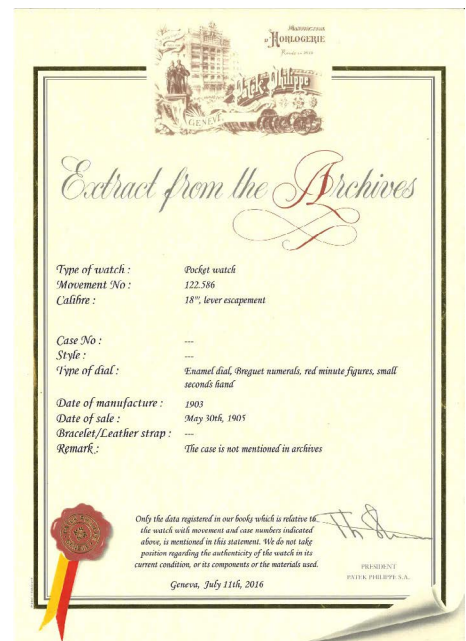 Manufacture
d'HORLOGERIE
Patek Philippe
GENÈVE
Extract from the Archives
Type of watch : Pocket watch
Movement No : 122.586
Calibre : 18''', lever escapement
Case No : ---
Style : ---
Type of dial : Enamel dial, Breguet numerals, red minute figures, small
seconds hand
Date of manufacture : 1903
Date of sale : May 30th, 1905
Bracelet/Leather strap : ---
Remark : The case is not mentioned in archives
Only the data registered in our books which is relative to
the watch with movement and case numbers indicated
above, is mentioned in this statement. We do not take
position regarding the authenticity of the watch in its
current condition, or its components or the materials used.
Geneva, July 11th, 2016
PRESIDENT
PATEK PHILIPPE S.A.